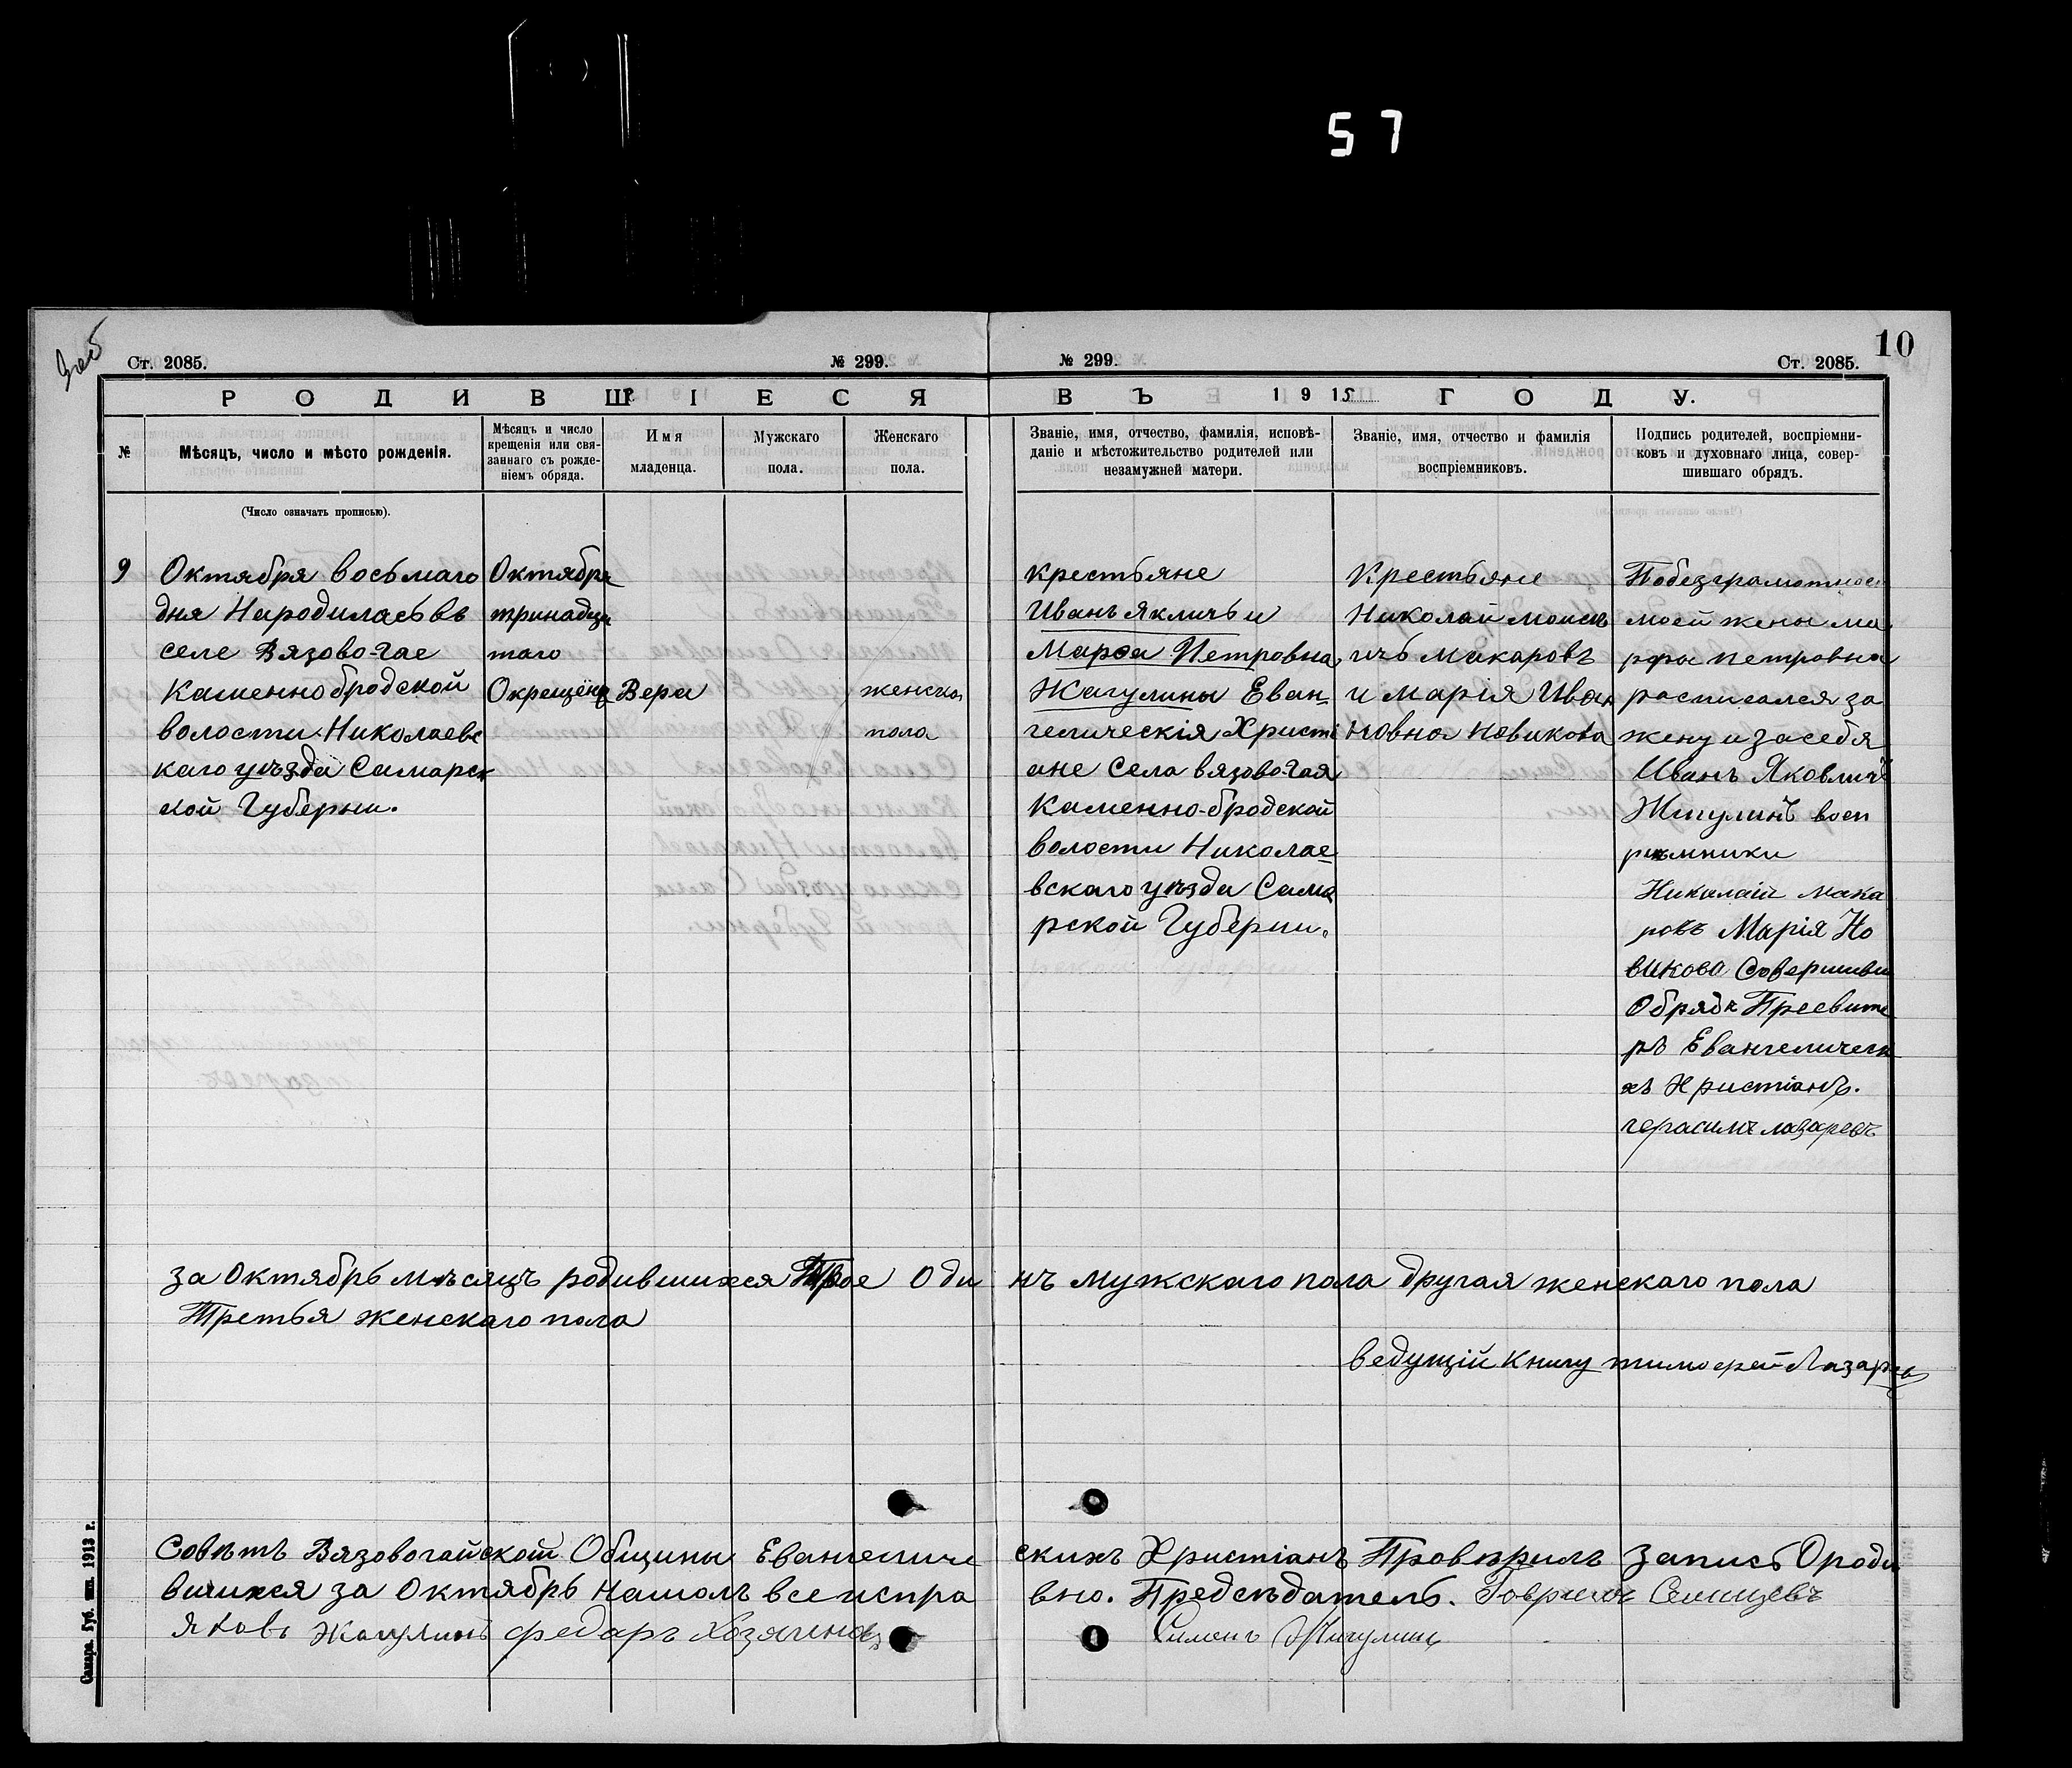 57
10
Ст. 2085. № 299. № 299. Ст. 2085.
РОДИВШІЕСЯ ВЪ 1915 ГОДУ.
№
Мѣсяцъ, число и мѣсто рожденія.
Мѣсяцъ и число
крещенія или свя-
заннаго съ рожде-
ніемъ обряда.
Имя
младенца.
Мужскаго
пола.
Женскаго
пола.
Званіе, имя, отчество, фамилія, исповѣ-
даніе и мѣстожительство родителей или
незамужней матери.
Званіе, имя, отчество и фамилія
воспріемниковъ.
Подпись родителей, воспріемни-
ковъ и духовнаго лица, совер-
шившаго обрядъ.
(Число означать прописью).
9
Октября восьмаго
дня Народилась въ
селе Вязово-Гае
Каменнобродской
волости Николаевс
каго уѣзда Самарск
ской Губерни.
Октября
тринадца
таго
Окрещена
Вера
женска
пола
крестьяне
Иванъ Якличъ и
Марѳа Петровна
Жагулины Еван-
гелическія Христі
ане Села вязово-Гая
Каменно-бродской
волости Николае
вскаго уѣзда Сама
рской Губерни.
Крестьяне
Николай моисѣ
ичъ Макаровъ
и Марія Иван
новна Новикова
Побезграмотнос
моей жены ма
рфы петровна
расписался за
жену и засебя
Иванъ Яковличъ
Жигулинъ восп
риемники
Николай мака
ровъ Марія Но
викова Совершивш
Обрядъ Пресвите
ръ Евангелическ
хъ Христіанъ.
герасимъ лазаревъ
за Октябрь мѣсяцъ родившихся Трое Оди нъ мужскаго пола другая женскаго пола
Третья женскаго пола
ведущій Книгу тимофей Лазаревъ
Совѣтъ Вязовогайской Общины Евангеличе скихъ Христіанъ Провѣрилъ Запись Ороди
вшихся за Октябрь нашолъ все испра вно. Предсѣдатель. Гаврилъ Селищевъ
Яковъ Жагулинъ федаръ Хозяинов Симонъ Жигулинъ
Самара. Губ. тип. 1913 г.